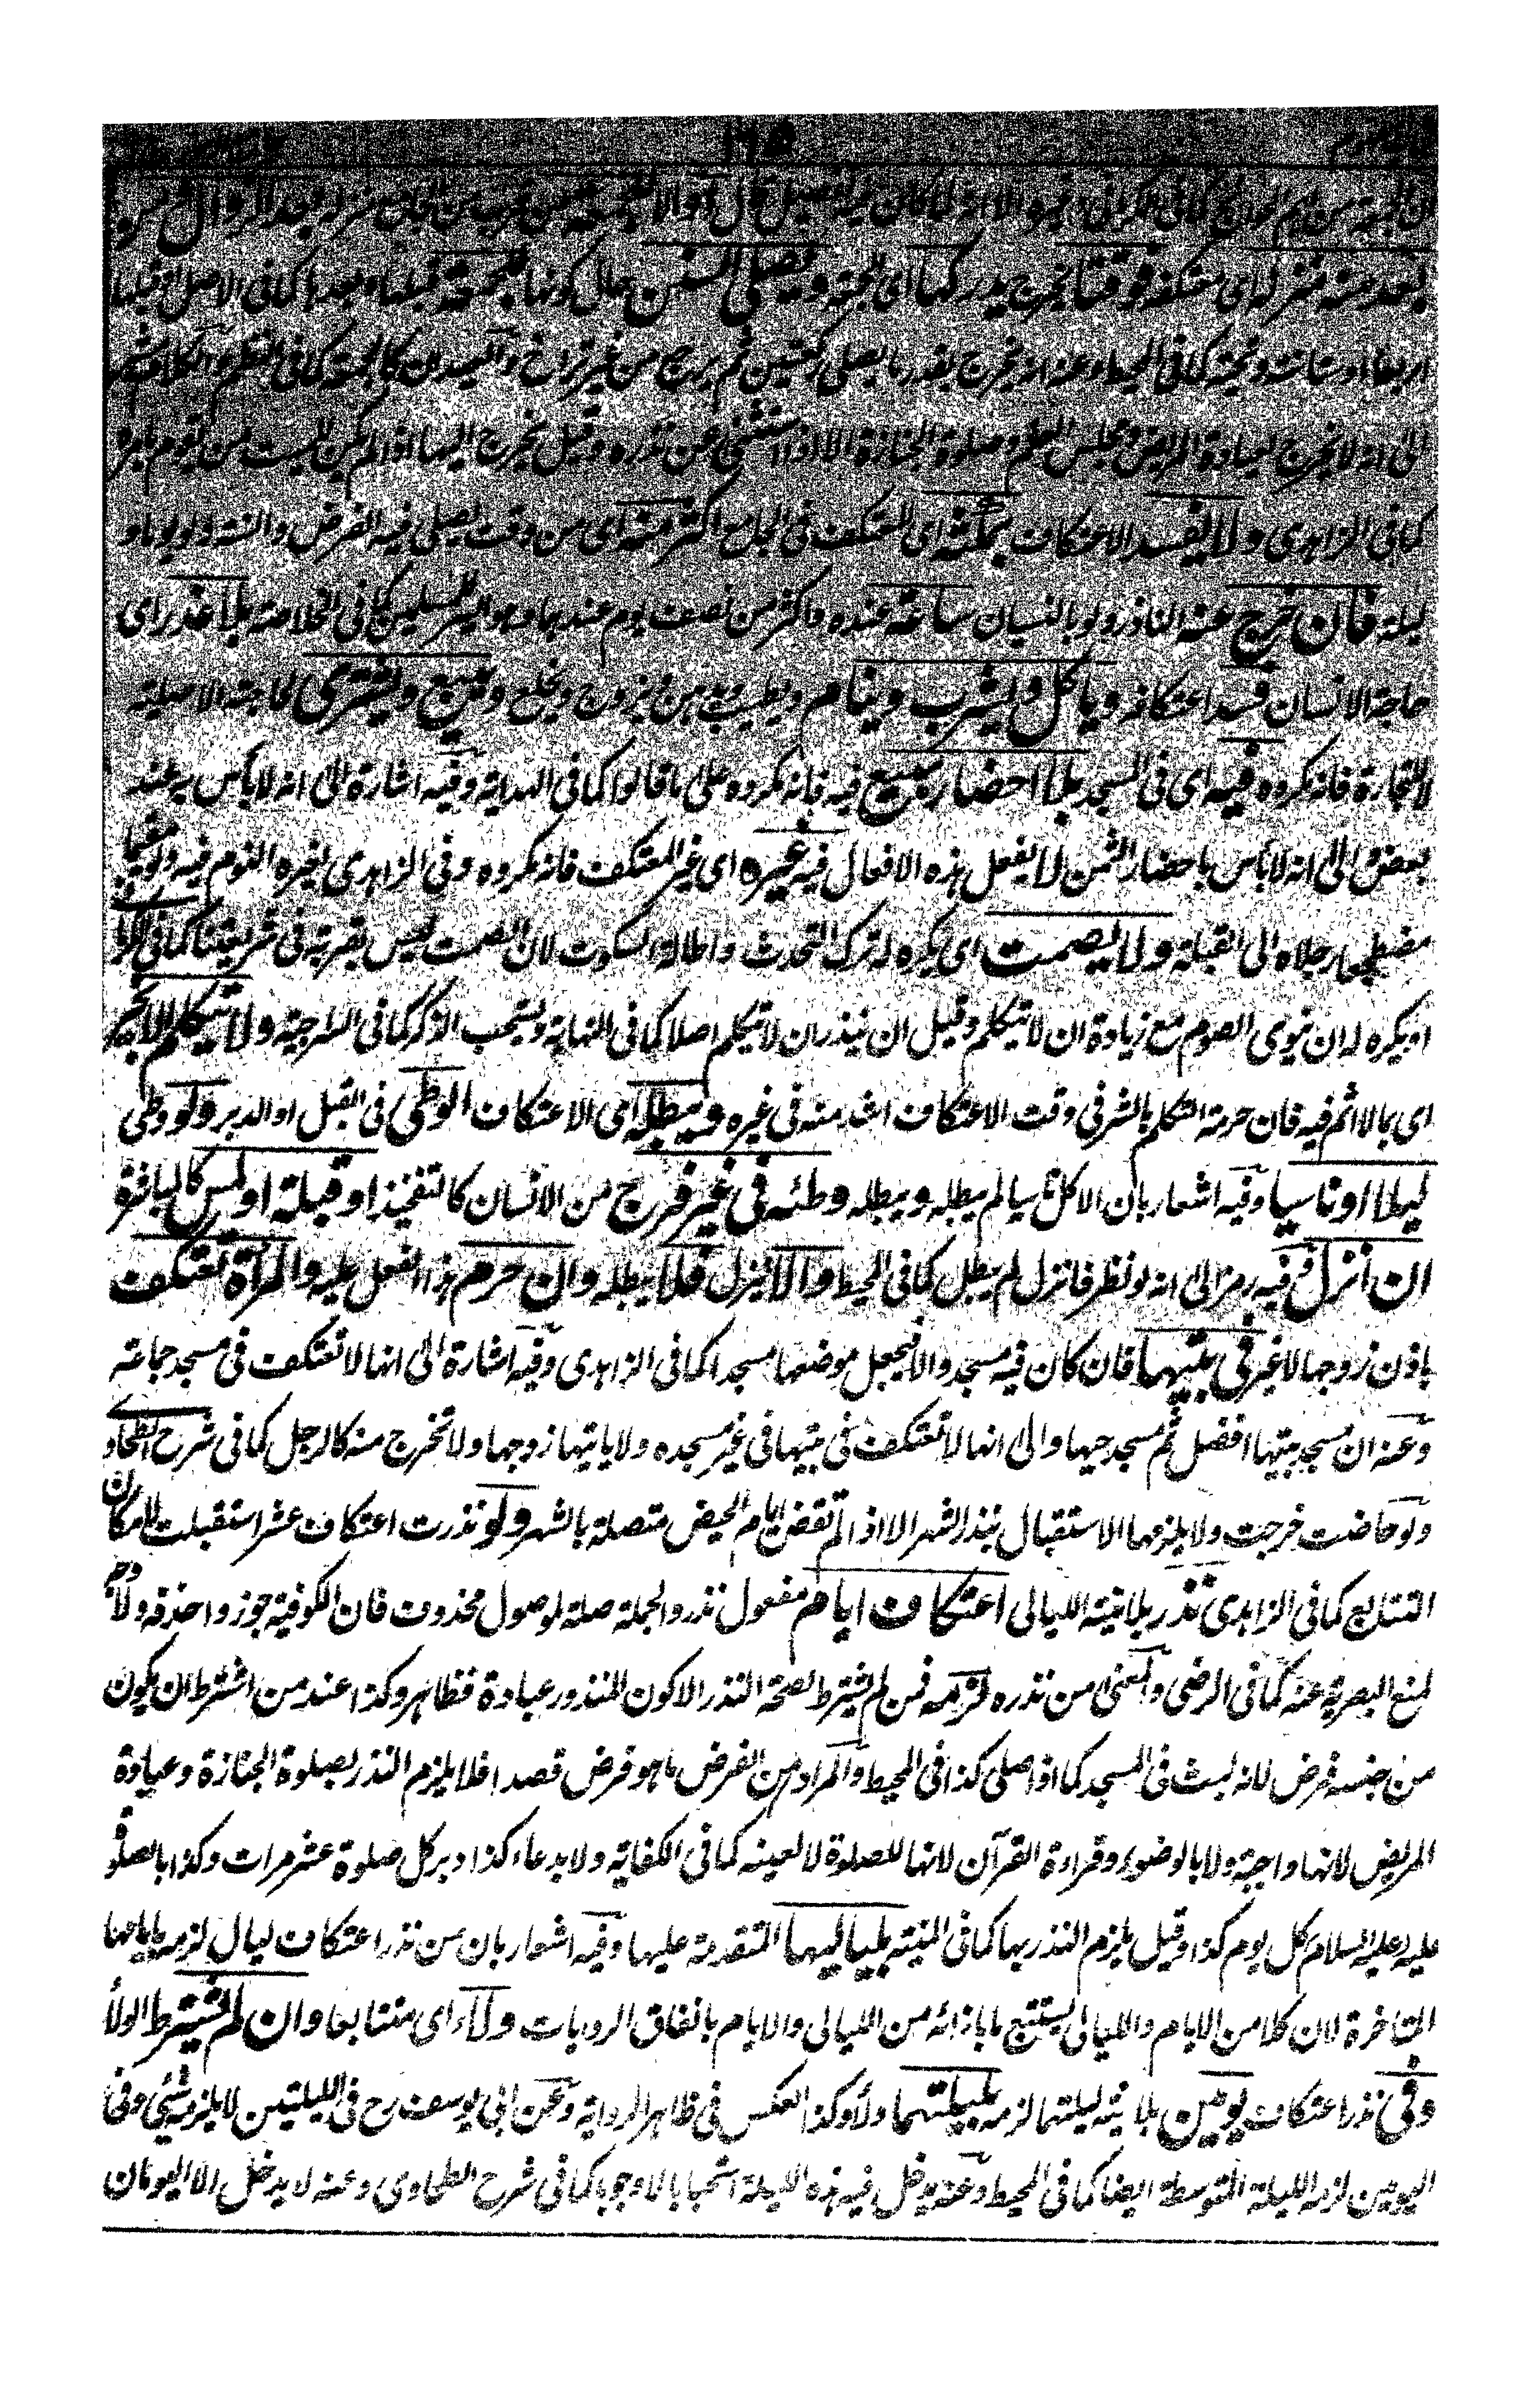 ١٦٥
بعد منه منزله اى معتكفه فوقتا يخرج يدركها اى الجمعة ويصلى السنن حال كونها للجمعة قبلها وبعدها كما فى الاصل او قبلها
اربعا او ستا سنة وتحية كما فى المحيط وعنه انه يخرج بقدر ما يصلى ركعتين ثم يرجع من غير تراخ والعيدان كالجمعة كما فى النظم والكلام مشير
الى انه لا يخرج لعيادة المريض ومجلس العلم وصلوة الجنازة الا اذا استثنى عن نذره وقيل يخرج اليها اذا لم يكن للميت من يقوم بامره
كما فى الزاهدى ولا يفسد الاعتكاف بمكثه اى المعتكف فى الجامع اكثر منه اى من وقت يصلى فيه الفرض والسنة ولو يوما و
ليلة فان خرج عنه الناذر ولو بالنسيان ساعة عنده واكثر من نصف يوم عندهما وهو ايسر للمسلمين كما فى الخلاصة بلا عذر اى
حاجة الانسان فسد اعتكافه وياكل ويشرب وينام ويطيب ويدهن ويتزوج ويخلع ويبيع ويشترى لحاجة الاصلية
لا للتجارة فانه مكروه فيه اى فى المسجد بلا احضار مبيع فيه فانه مكروه على ما قالوا كما فى الهداية وفيه اشارة الى انه لا بأس به عند
بعض والى انه لا بأس باحضار الثمن لا يفعل هذه الافعال فيه غيره اى غير المعتكف فانه مكروه وفى الزاهدى لغيره النوم فيه ولو مقيما
مضطجعا رجلاه الى القبلة ولا يصمت اى يكره له ترك التحدث واطالة السكوت لان الصمت ليس بقربة فى شريعتنا كما فى
او يكره له ان ينوى الصوم مع زيادة ان لا يتكلم وقيل ان ينذر ان لا يتكلم اصلا كما فى النهاية ويستحب الذكر كما فى السراجية ولا يتكلم الا بخير
اى بما لا اثم فيه فان حرمة التكلم بالشر فى وقت الاعتكاف اشد منه فى غيره ويبطله اى الاعتكاف الوطى فى القبل او الدبر ولو وطى
ليلا او ناسيا وفيه اشعار بان الاكل ناسيا لم يبطله ويبطله وطئه فى غير فرج من الانسان كالتفخيذ او قبلة او لمس كالمباشرة
ان انزل ففيه رمز الى انه لو نظر فانزل لم يبطل كما فى المحيط والا ينزل فلا يبطله وان حرم هذا الفعل عليه والمرأة تعتكف
باذن زوجها لا غير فى بيتها فان كان فيه مسجد والا فيجعل موضعها مسجدا كما فى الزاهدى وفيه اشارة الى انها لا تعتكف فى مسجد جماعة
وعنه ان مسجد بيتها افضل ثم مسجد حيها والى انها لا تعتكف فى بيتها فى غير مسجده ولا ياتيها زوجها ولا تخرج منه كالرجل كما فى شرح الطحاوى
ولو حاضت خرجت ولا يلزمها الاستقبال بنذر الشهر الا اذا لم تقض ايام الحيض متصلة بالشهر ولو نذرت اعتكاف عشر استقبلت لامكان
التتابع كما فى الزاهدى نذر بلا نية الليالى اعتكاف ايام مفعول نذر والجملة صلة لموصول محذوف فان الكوفية جوزوا حذفه ولا وجه
لمنع البصرية عنه كما فى الرضى والمعنى من نذره لزمه فمن لم يشترط لصحة النذر الا كون المنذور عبادة فظاهر وكذا عند من اشترط ان يكون
من جنسه فرض لانه لبث فى المسجد كما اذا صلى كذا فى المحيط والمراد من الفرض ما هو فرض قصدا فلا يلزم النذر بصلوة الجنازة وعيادة
المريض لانها واجبة ولا بالوضوء وقراءة القرآن لانها للصلوة لا لعينه كما فى الكفاية ولا بدعاء كذا دبر كل صلوة عشر مرات وكذا بالصلوة
عليه عليه السلام كل يوم كذا وقيل يلزم النذر بها كما فى المنية بلياليها المتقدمة عليها وفيه اشعار بان من نذر اعتكاف ليال لزمه بايامها
المتاخرة لان كلا من الايام والليالى يستتبع ما بازائه من الليالى والايام باتفاق الروايات ولاء اى متتابعا وان لم يشترط الولأ
وفى نذر اعتكاف يومين بلا نية ليلتهما لزمه بليلتهما ولأ وكذا العكس فى ظاهر الرواية وعن ابى يوسف رح فى الليلتين لا يلزمه شئ وفى
اليومين لزمه الليلة المتوسطة ايضا كما فى المحيط وعنه يدخل فيه هذه الليلة استحبابا لا وجوبا كما فى شرح الطحاوى وعنه لا يدخل الا اليومان